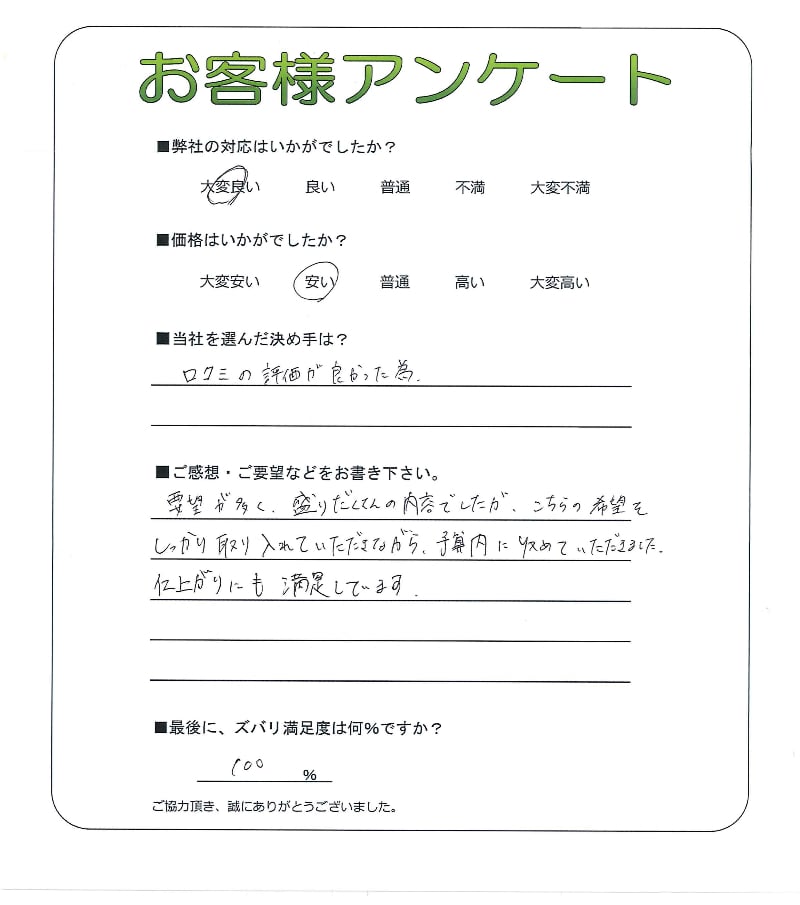 お客様アンケート
■弊社の対応はいかがでしたか？
大変良い 良い 普通 不満 大変不満
■価格はいかがでしたか？
大変安い 安い 普通 高い 大変高い
■当社を選んだ決め手は？
口クミの評価が良かった為.
■ご感想・ご要望などをお書き下さい。
要望が多く、盛りだくさんの内容でしたが、こちらの希望を
しっかり取り入れていただきながら、予算内に収めていただきました。
仕上がりにも満足しています.
■最後に、ズバリ満足度は何%ですか？
100 %
ご協力頂き、誠にありがとうございました。